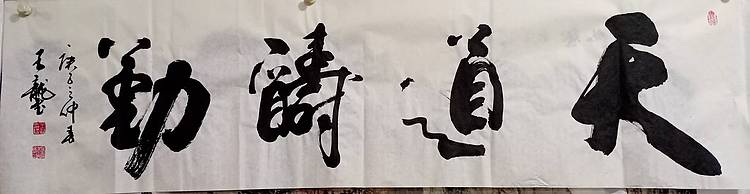 天道醻勤
庚子之仲春
王